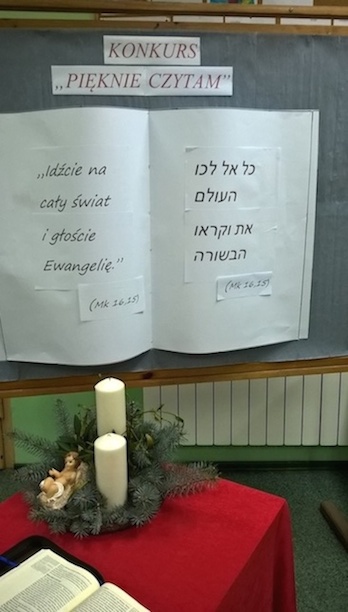 KONKURS
„PIĘKNIE CZYTAM”
„Idźcie na
cały świat
i głoście
Ewangelię.”
(Mk 16,15)
כל אל לכו
העולם
את וקראו
הבשורה
(Mk 16,15)